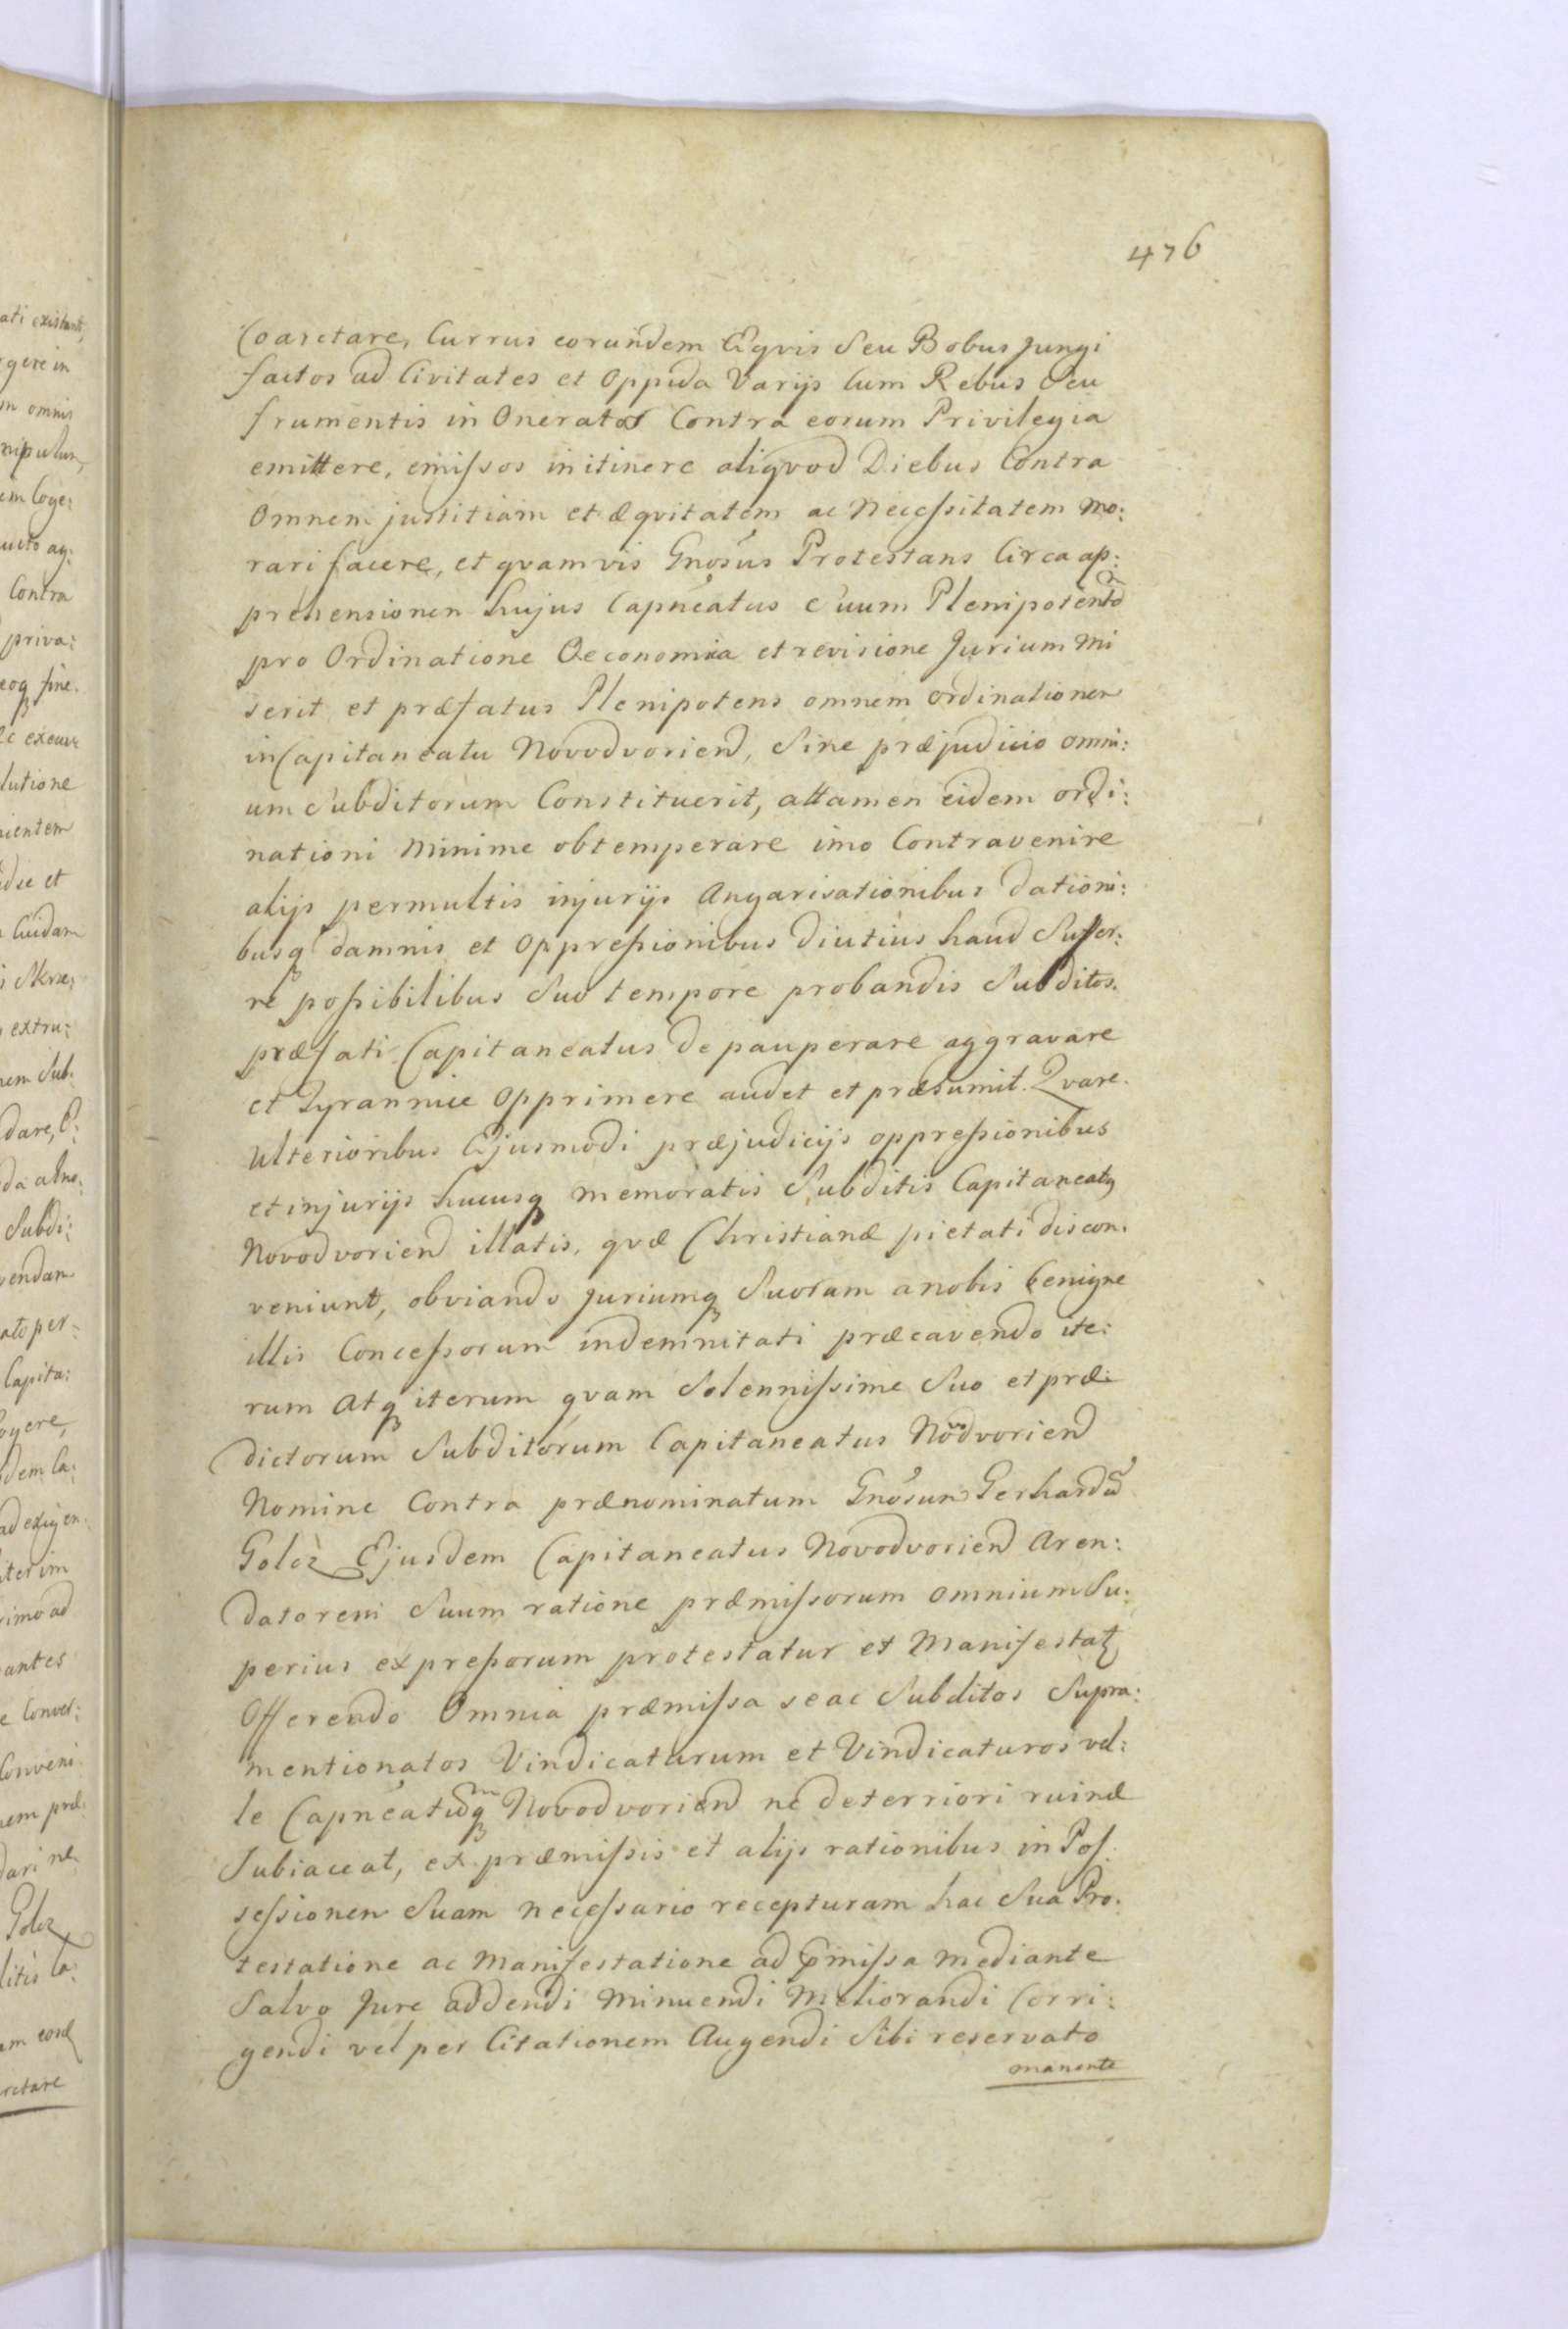 476
Coarctare, Currus eorundem Eqvis seu Bobus jungi
factos ad Civitates et Oppida Varijs cum Rebus seu
frumentis in Oneratos Contra eorum Privilegia
emittere, emissos in itinere aliqvod Diebus Contra
Omnem justitiam et æqvitatem ac Necessitatem mo:
rari facere, et qvamvis Gnosus Protestans Circa ap:
prehensionem hujus Capneatus suum Plenipotento
pro Ordinatione Oeconomia et revisione Jurium mi
serit et præfatus Plenipotens omnem ordinationem
in Capitaneatu Novodvoriend, Sine præjudicio omni:
um Subditorum Constituerit, attamen eidem ordi:
nationi Minime obtemperare imo Contravenire
alijs permultis injurijs Angarisationibus dationi:
busq damnis et oppressionibus diutius haud Suffer:
re possibilibus Suo tempore probandis Subditos
præfati Capitaneatus depauperare aggravare
et Tyrannice Opprimere audet et præsumit. Qvare
Ulterioribus Ejusmodi præjudicijs oppressionibus
et injurijs hucusq memoratis Subditis Capitaneatq
Novodvoriend illatis, qvæ Christianæ pietati discon:
veniunt, obviando juriumq Suorum a nobis benigne
illis Concessorum indemnitati præcavendo ite:
rum atq iterum qvam Solennissime Suo et præ:
dictorum Subditorum Capitaneatus Novodvoriend
Nomine Contra prænominatum Gnosum Gerhardu
Golcz Ejusdem Capitaneatus Novodvoriend Aren:
datorem Suum ratione præmissorum omnium Su:
perius expressorum protestatur et Manifestat
Offerendo Omnia præmissa se ac Subditos Supra:
mentionatos Vindicaturum et Vindicaturos vel:
le Capneatumq Novodvoriend ne deterriori ruinæ
Subiaceat, ex præmissis et alijs rationibus in Pos:
sessionem Suam necessario recepturam hac Sua Pro:
testatione ac Manifestatione ad pmissa mediante
Salvo Jure addendi Minuendi Meliorandi Corri:
gendi vel per Citationem Augendi Sibi reservato
manente